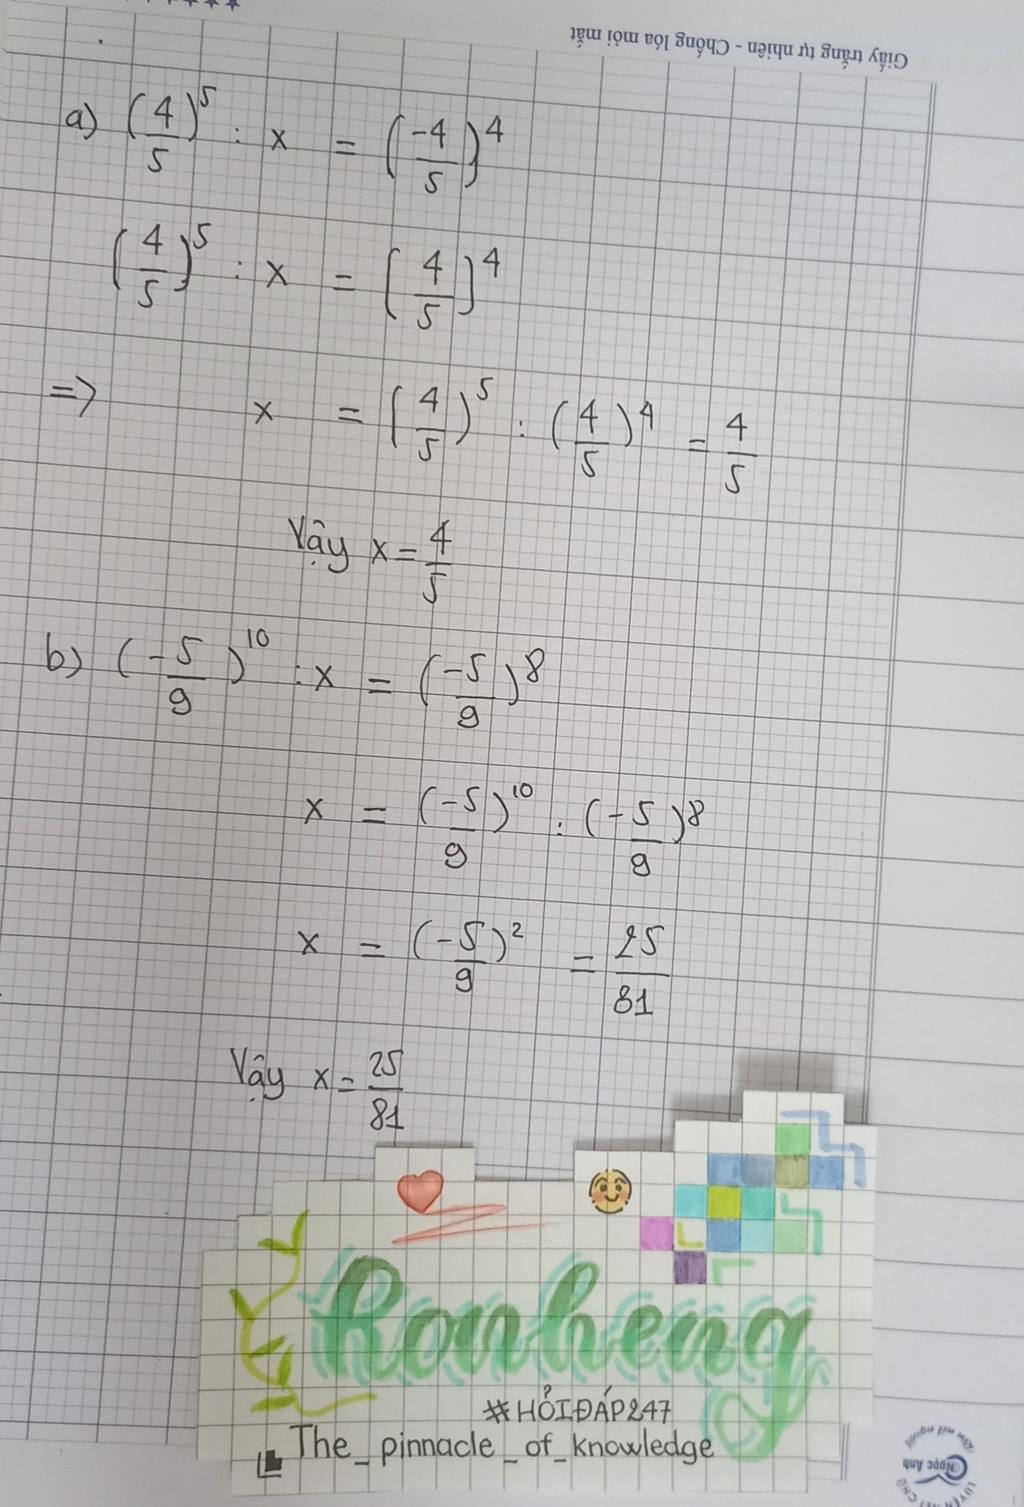 Giấy trắng tự nhiên - Chống lóa mỏi mắt
a) (4/5)^5 : x = (-4/5)^4
(4/5)^5 : x = (4/5)^4
=> x = (4/5)^5 : (4/5)^4 = 4/5
Vậy x = 4/5
b) (-5/9)^10 : x = (-5/9)^8
x = (-5/9)^10 : (-5/9)^8
x = (-5/9)^2 = 25/81
Vậy x = 25/81
Ronheng
#HỎIĐÁP247
The_pinnacle_of_knowledge
Ngọc Ánh